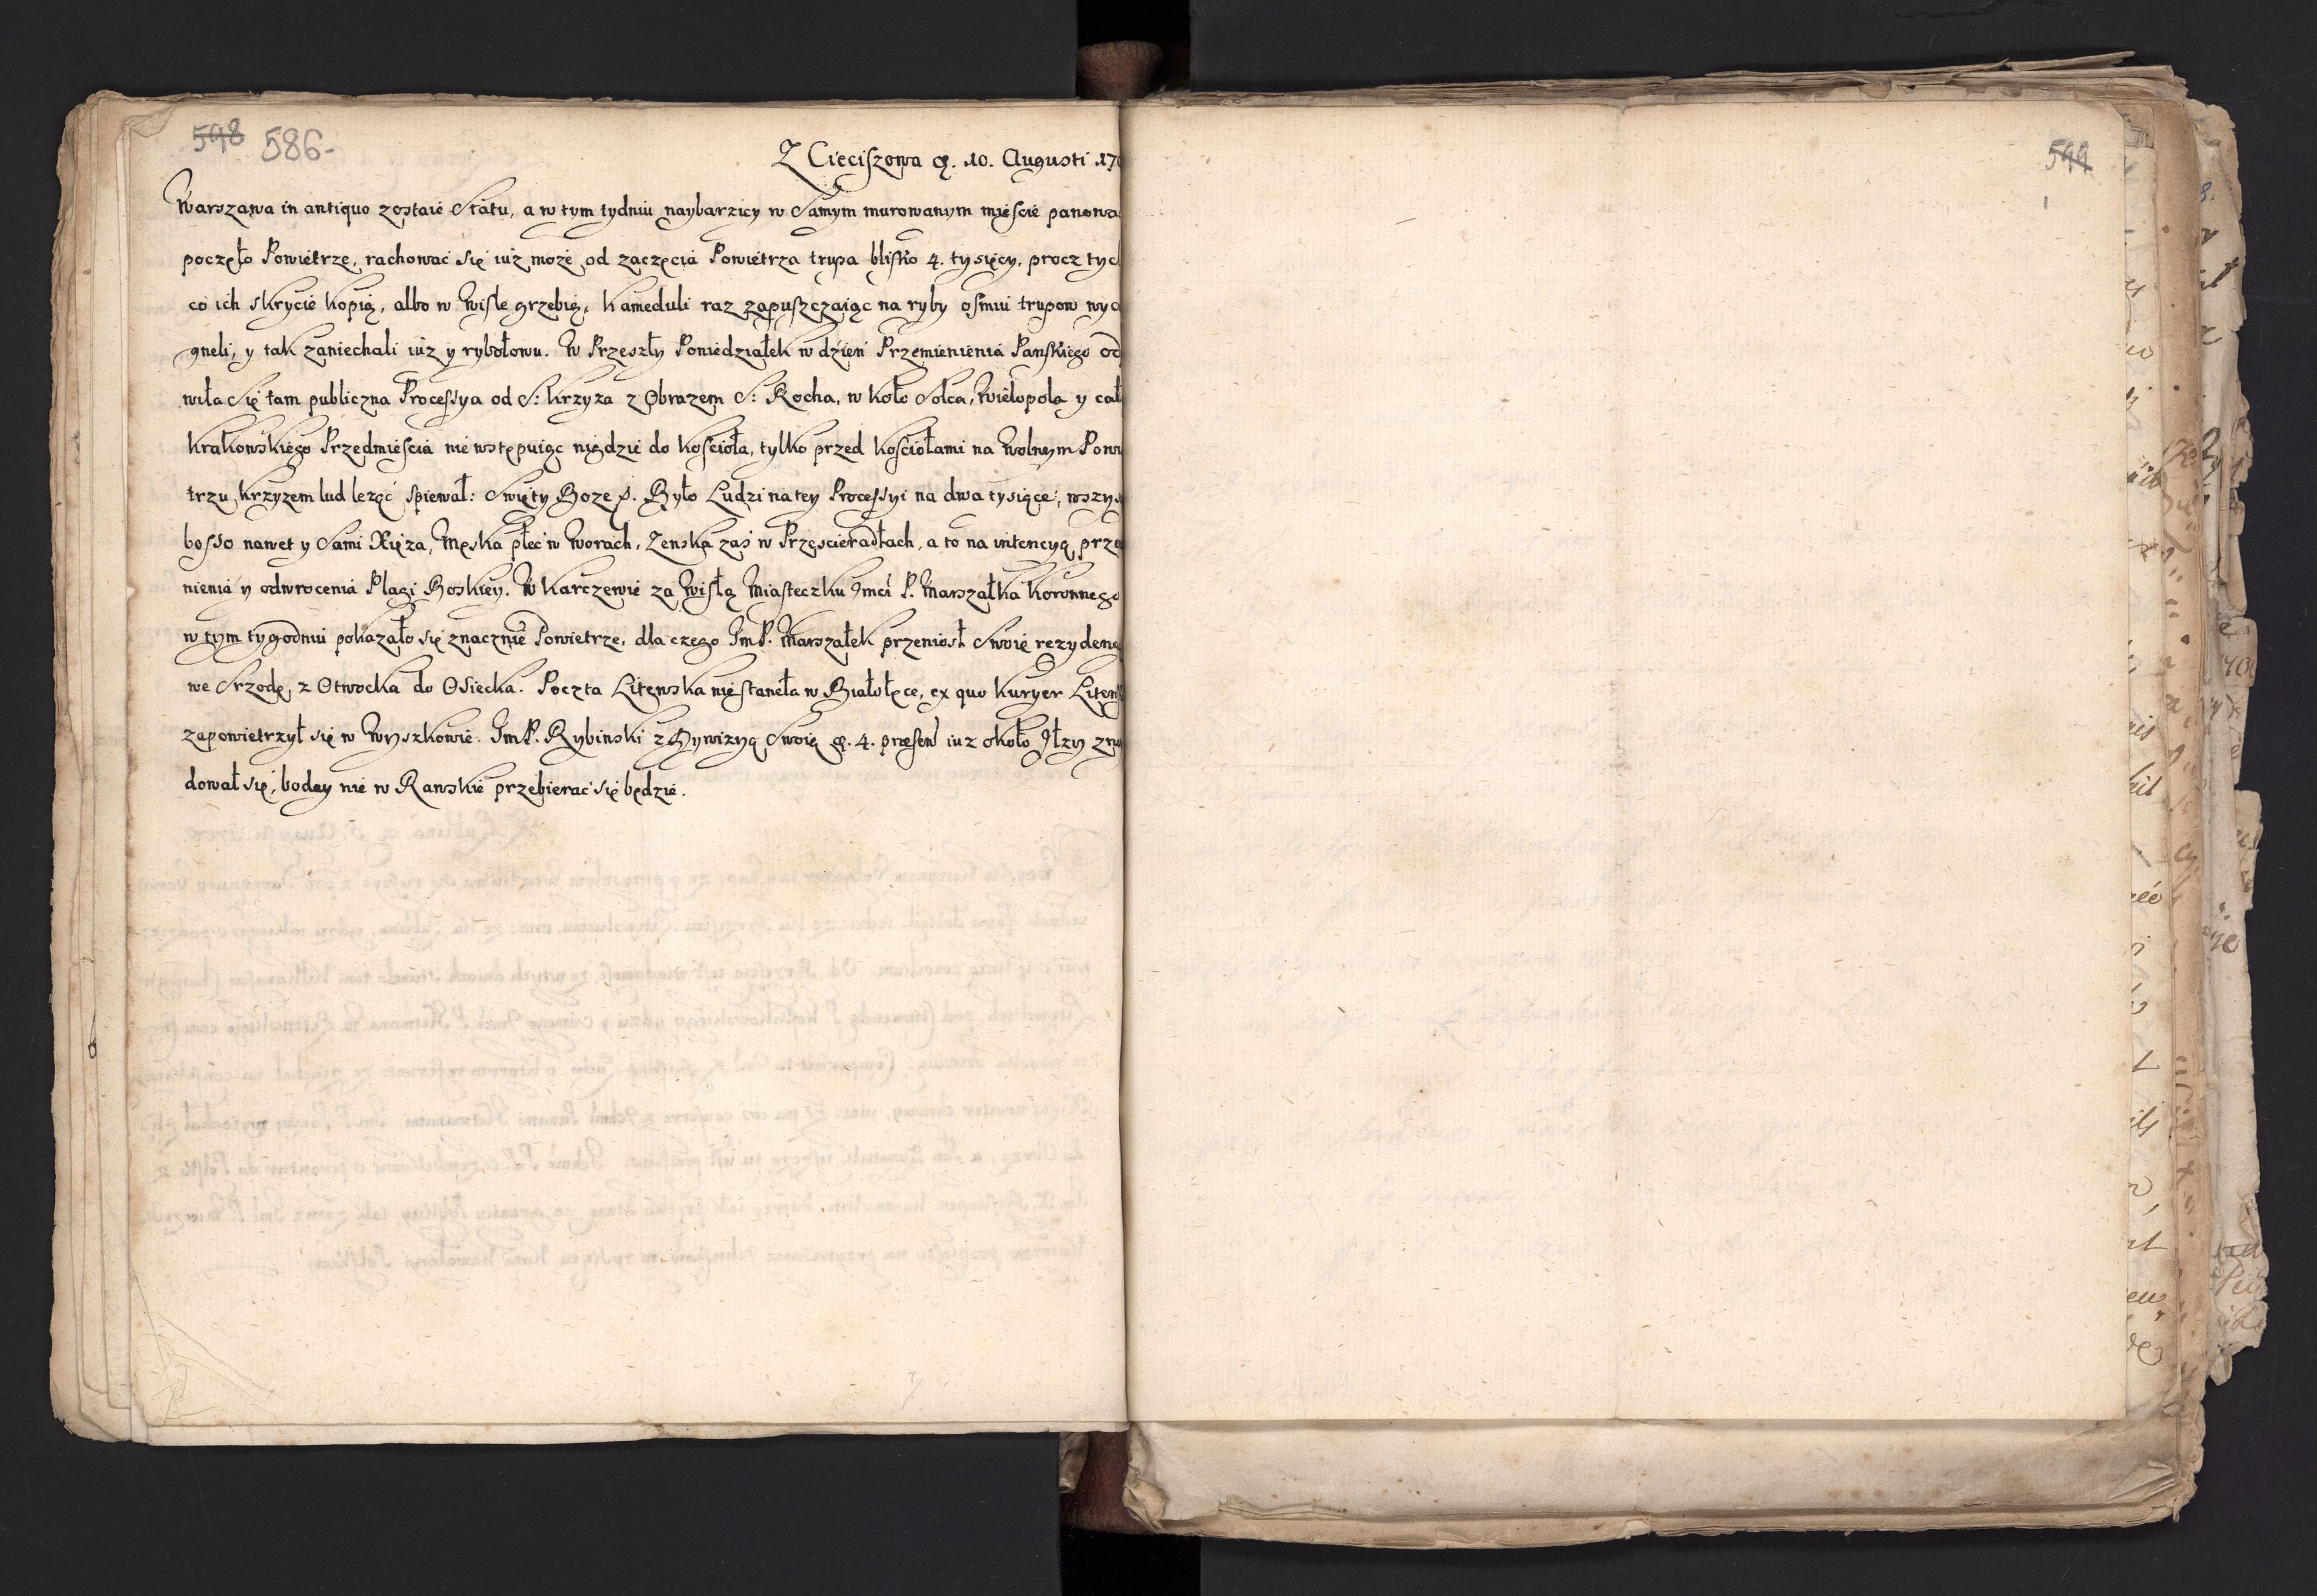 598 586-
Z Cieciszowa d. 10. Augusti 170
Warszawa in antiquo zostaie Statu, a w tym tydniu naybarziey w Samym murowanym mieście panowa
poczęło Powietrze, rachować się iuż może od zaczęcia Powietrza trupa blisko 4. tysięcy, procz tyc
co ich skrycie kopią, albo w Wiśle grzebią, Kameduli raz zapuszczaiąc na ryby ośmiu trupow wyc
gneli, y tak zaniechali iuż y rybołowu. W Przeszły Poniedziałek w dzień Przemienienia Pańskiego od
wiła Się tam publiczna Processya od S: Krzyza z Obrazem S: Rocha, w koło Solca, Wielopola y cał
Krakowskiego Przedmieścia nie wstępuiąc nigdzie do Kościoła, tylko przed Kościołami na Wolnym Powi
trzu, krzyzem lud leząć spiewał: Swięty Boze p. Było Ludzi na tey Processyi na dwa tysiące, wszys
bosso nawet y Sami Xięza, Męska płeć w Worach, Zenska zaś w Prześcieradłach, a to na intencyą prze
nienia y odwrocenia Plagi Boskiey. W Karczewie za Wisłą Miasteczku Jmci P. Marszałka Koronnego
w tym tygodniu pokazało się znacznie Powietrze, dla czego Jm P. Marszałek przeniosł Swoię rezydenc
we Srzodę, z Otwocka do Osiecka. Poczta Litewska nie staneła w Białołęce, ex quo Kuryer Litews
zapowietrzył się w Wyszkowie. Jm P. Rybinski z Dywizyą Swoią d. 4. præsen iuz około Jłzy zna
dował się, boday nie w Rawskie przebierać się będzie.
599